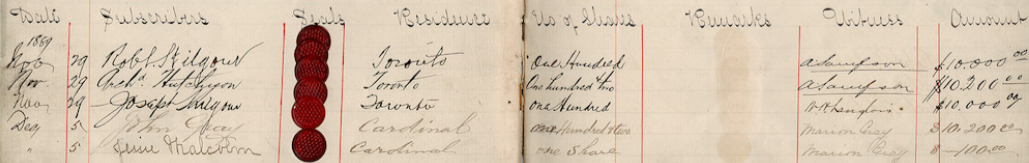 Date Subscribers Seals Residence No of Shares Remarks Witness Amount
1889
Nov 29 Robt. Kilgour Toronto One Hundred $10.000 00
Nov 29 Archd. Hutchison Toronto One hundred two $10.200 00
Nov 29 Joseph Kilgour Toronto One Hundred $10.000 00
Dec 5 John Gray Cardinal one Hundred & two Marion Gray $10,200 00
" 5 Jessie Malcolm Cardinal one Share Marion Gray $ -100.00